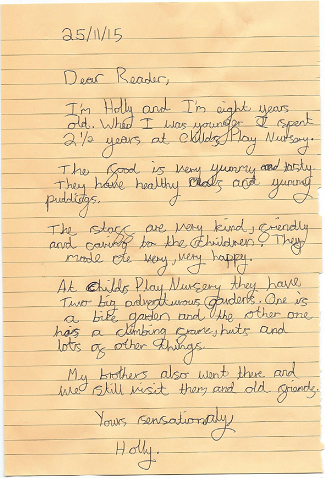 25/11/15
Dear Reader,
I'm Holly and I'm eight years
old. When I was younger I spent
2½ years at Childs Play Nursery.
The food is very yummy and tasty
They have healthy meals and yummy
puddings.
The staff are very kind, friendly
and caring to the children. They
made me very, very happy.
At Childs Play Nursery they have
Two big adventurous gardens. One is
a bike garden and the other one
has a climbing frame, huts and
lots of other things.
My brothers also went there and
we still visit them and old friends.
Yours sensationaly,
Holly.